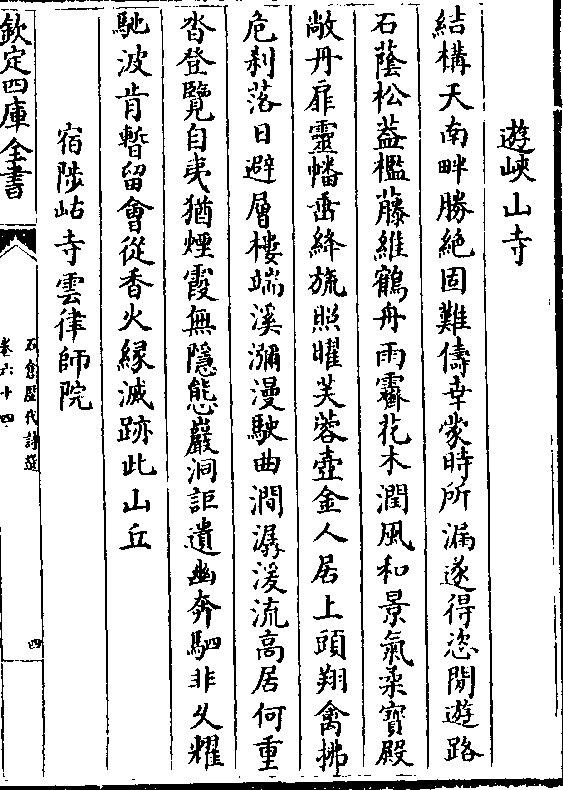 遊峽山寺
結構天南畔勝絶固難儔幸蒙時所漏遂得恣閒遊路
石蔭松葢檻藤維鶴舟雨霽花木潤風和景氣柔寳殿
敞丹扉靈幡垂絳旒照曜芙蓉壺金人居上頭翔禽拂
危刹落日避層樓端溪瀰漫駛曲澗潺湲流高居何重
沓登覽自夷猶煙霞無隱態巖洞詎遺幽奔駟非久耀
馳波肯暫留會從香火縁滅跡此山丘
宿陟岵寺雲律師院
欽定四庫全書
石倉歷代詩選
卷六十四
四